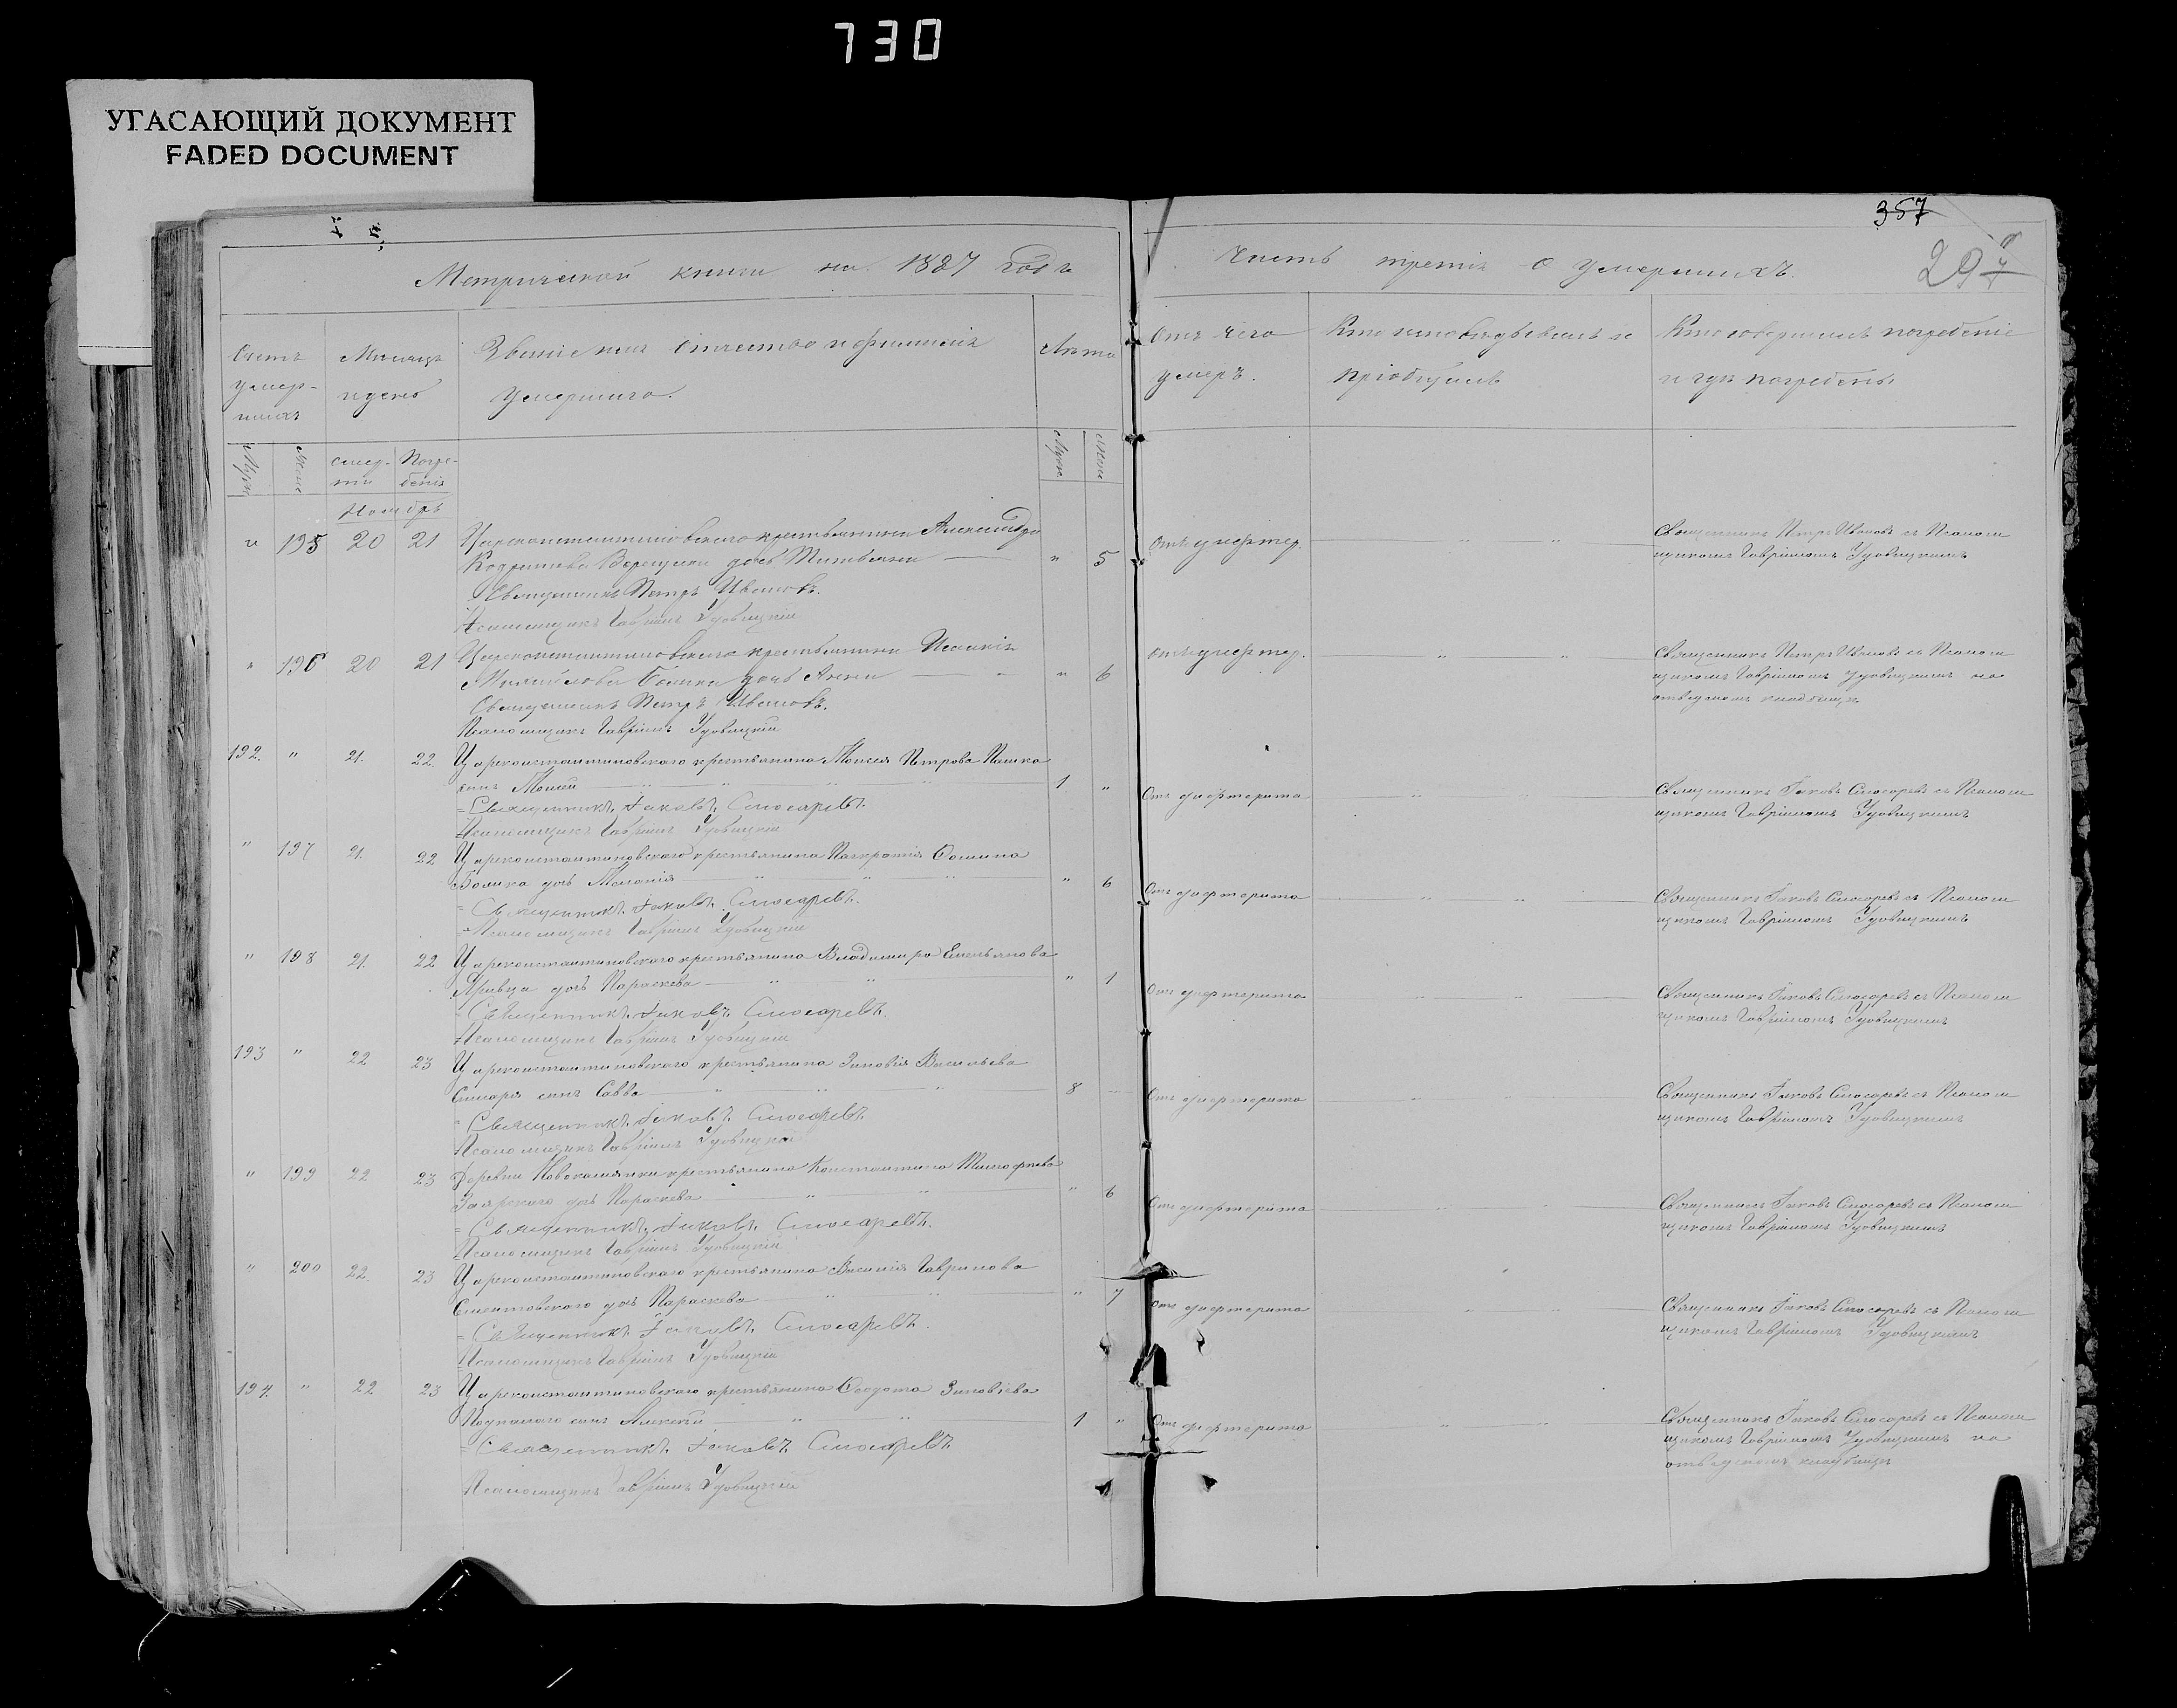 730
УГАСАЮЩИЙ ДОКУМЕНТ
FADED DOCUMENT
357
297
Метрической книги на 1887 годъ
Часть третія о умершихъ.
Счетъ умер-шихъ
Мѣсяцъ и день
Званіе имя отчество и фамилія умершаго.
Лѣта
Отъ чего умеръ.
Кто исповѣдывалъ и пріобщилъ
Кто совершилъ погребеніе и гдѣ погребены
Муж.
Жен.
смер-ти
Погре-бенія
Муж.
Жен.
Ноябрь
" 195 20 21 Цареконстантиновскаго крестьянина Александра
дочь Татьяна " 5
Священникъ Петръ Ивановъ.
Псаломщикъ Гавріилъ Удовицкій
Отъ дифтер. " "
Священникъ Петръ Ивановъ съ Псалом
щикомъ Гавріиломъ Удовицкимъ
" 196 20 21 Цареконстантиновскаго крестьянина Исаакія
Михайлова Болика дочь Анна " 6
Священникъ Петръ Ивановъ.
Псаломщикъ Гавріилъ Удовицкій
отъ дифтер. " "
Священникъ Петръ Ивановъ съ Псалом
щикомъ Гавріиломъ Удовицкимъ на
отведеномъ кладбищѣ
192. " 21. 22. Цареконстантиновскаго крестьянина Моисея Петрова Пашка
сынъ 1 "
Священникъ Іаковъ Слюсаревъ.
Псаломщикъ Гавріилъ Удовицкій
Отъ дифтерита " "
Священникъ Іаковъ Слюсаревъ съ Псалом
щикомъ Гавріиломъ Удовицкимъ
" 197 21. 22 Цареконстантиновскаго крестьянина Панкратія Фомина
Болика дочь Меланія " 6
Священникъ Іаковъ Слюсаревъ.
Псаломщикъ Гавріилъ Удовицкій
Отъ дифтерита " "
Священникъ Іаковъ Слюсаревъ съ Псалом
щикомъ Гавріиломъ Удовицкимъ
" 198 21. 22 Цареконстантиновскаго крестьянина Владиміра Емельянова
дочь Параскева " 1
Священникъ Іаковъ Слюсаревъ.
Псаломщикъ Гавріилъ Удовицкій
Отъ дифтерита " "
Священникъ Іаковъ Слюсаревъ съ Псалом
щикомъ Гавріиломъ Удовицкимъ
193 " 22 23 Цареконстантиновскаго крестьянина Зиновія Васильева
сынъ Савва 8
Священникъ Іаковъ Слюсаревъ
Псаломщикъ Гавріилъ Удовицкій
Отъ дифтерита
Священникъ Іаковъ Слюсаревъ съ Псалом
щикомъ Гавріиломъ Удовицкимъ
" 199 22 23 Деревни Новокамянки крестьянина Константина Тимофѣева
Заярскаго дочь Параскева " 6
Священникъ Іаковъ Слюсаревъ.
Псаломщикъ Гавріилъ Удовицкій
Отъ дифтерита
Священникъ Іаковъ Слюсаревъ съ Псалом
щикомъ Гавріиломъ Удовицкимъ
" 200 22. 23 Цареконстантиновскаго крестьянина Василія Гаврилова
дочь Параскева " 7
Священникъ Іаковъ Слюсаревъ.
Псаломщикъ Гавріилъ Удовицкій
Отъ дифтерита " "
Священникъ Іаковъ Слюсаревъ съ Псалом
щикомъ Гавріиломъ Удовицкимъ
194. " 22 23 Цареконстантиновскаго крестьянина Ѳеодота Зиновіева
сынъ Алексѣй 1 "
Священникъ Іаковъ Слюсаревъ
Псаломщикъ Гавріилъ Удовицкій
Отъ дифтерита " "
Священникъ Іаковъ Слюсаревъ съ Псалом
щикомъ Гавріиломъ Удовицкимъ на
отведеномъ кладбищѣ